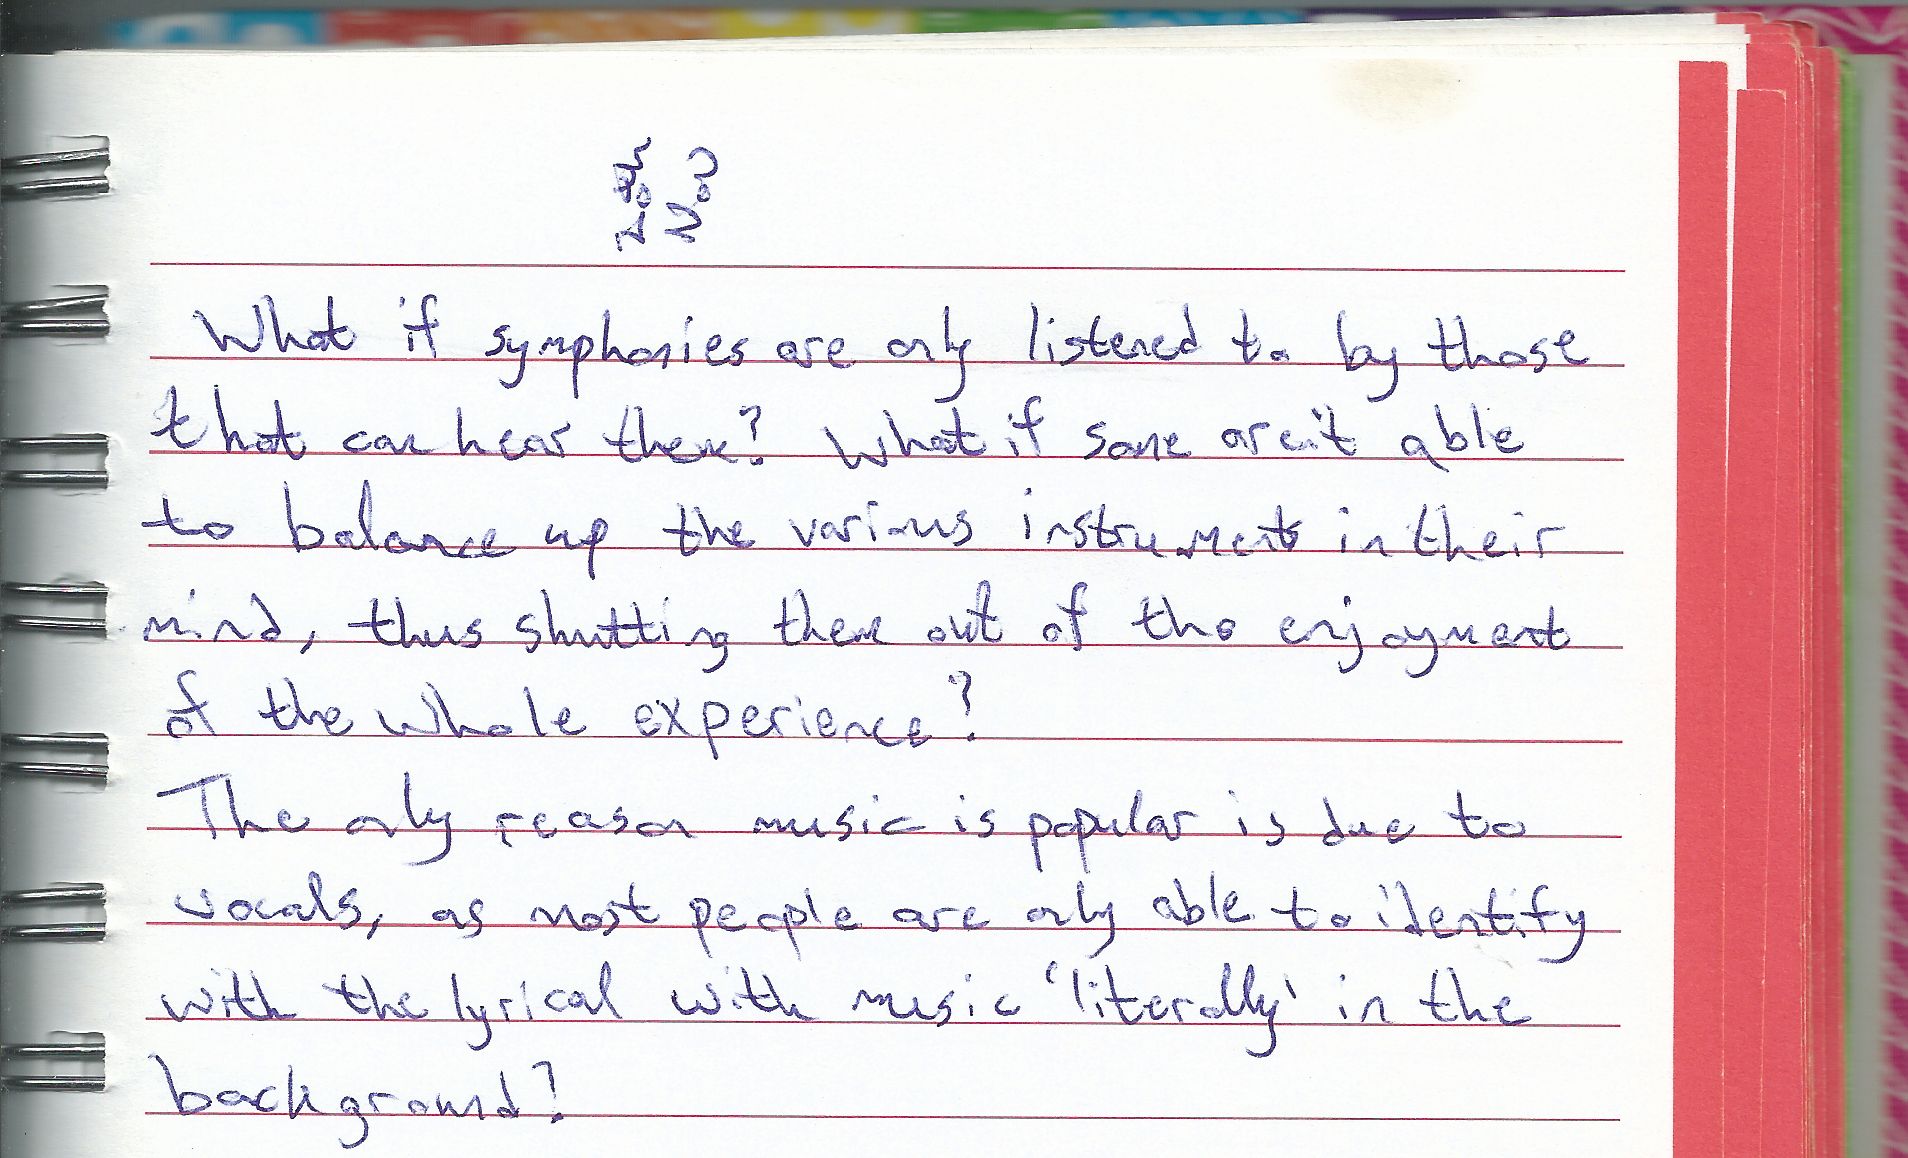 What if symphonies are only listened to by those
that can hear them? What if some aren't able
to balance up the various instruments in their
mind, thus shutting them out of the enjoyment
of the whole experience?
The only reason music is popular is due to
vocals, as most people are only able to identify
with the lyrical with music 'literally' in the
background?